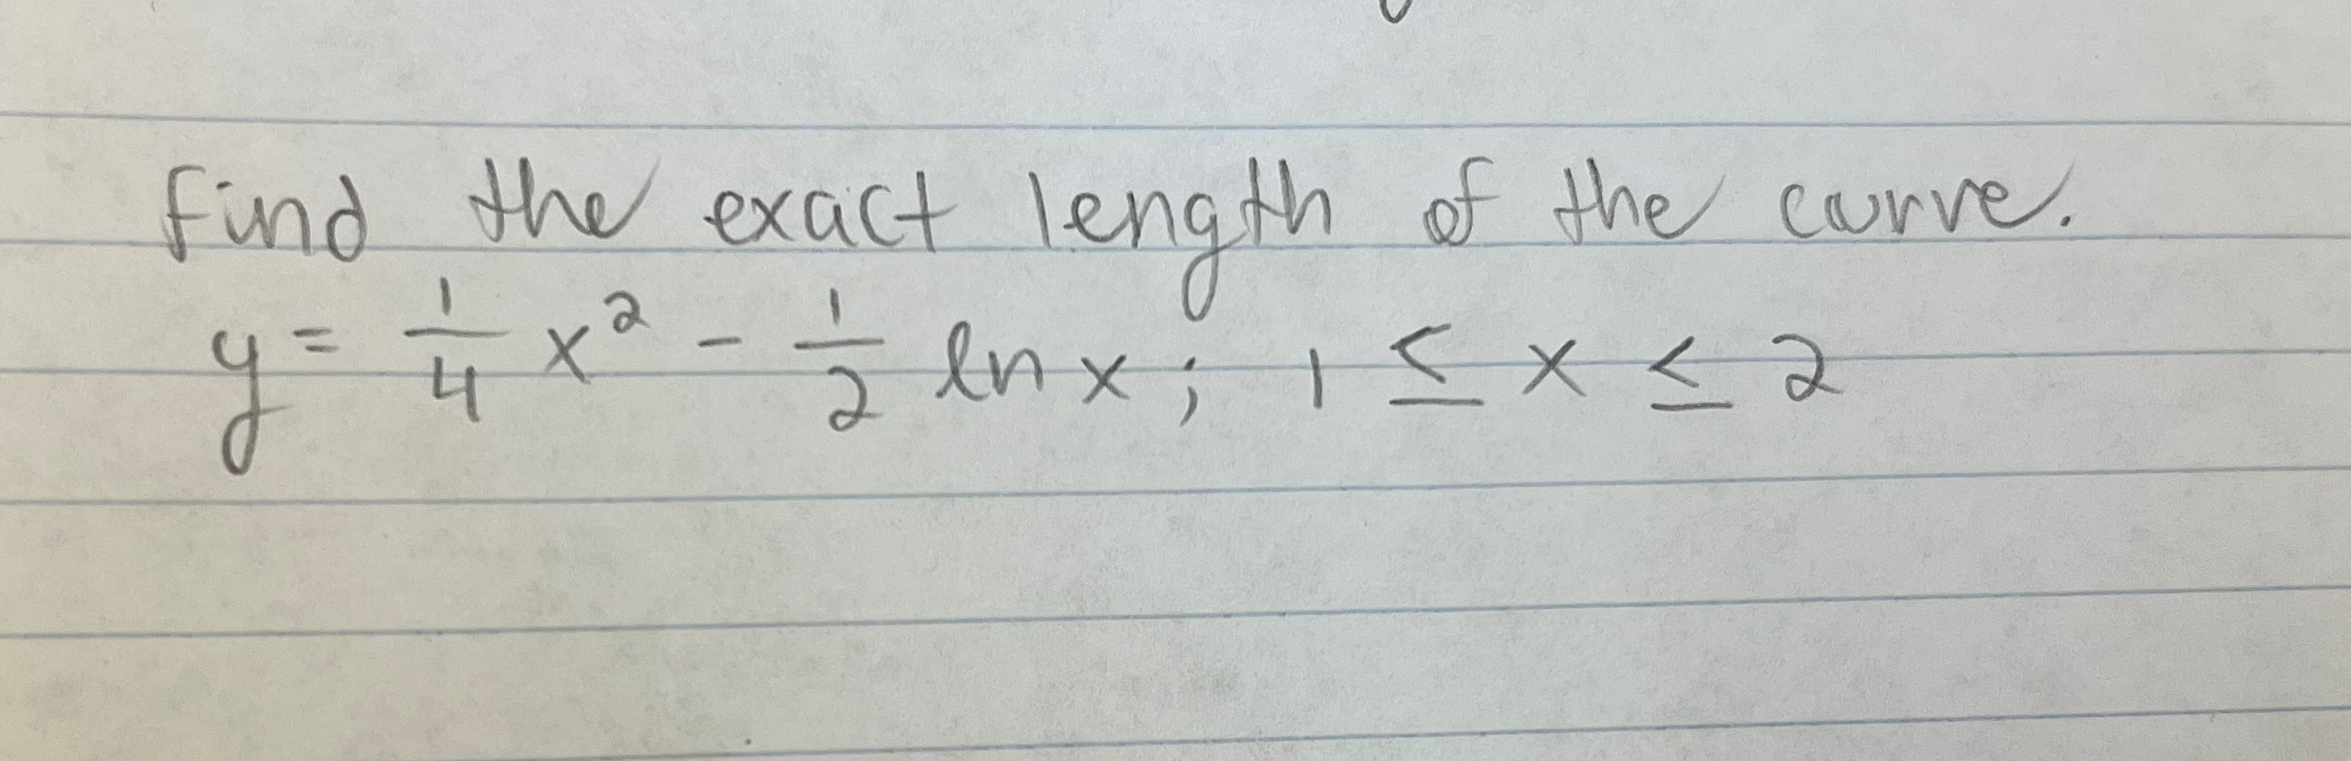 find the exact length of the curve.
y = 1/4 x² - 1/2 ln x; 1 ≤ x ≤ 2